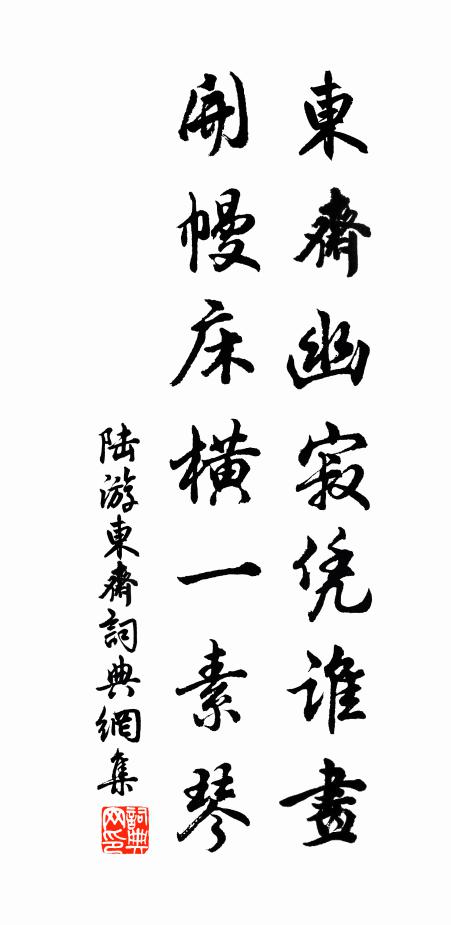 東齋幽寂凭誰畫
開幔床橫一素琴
陸游東齋詞典網集
詞典网印